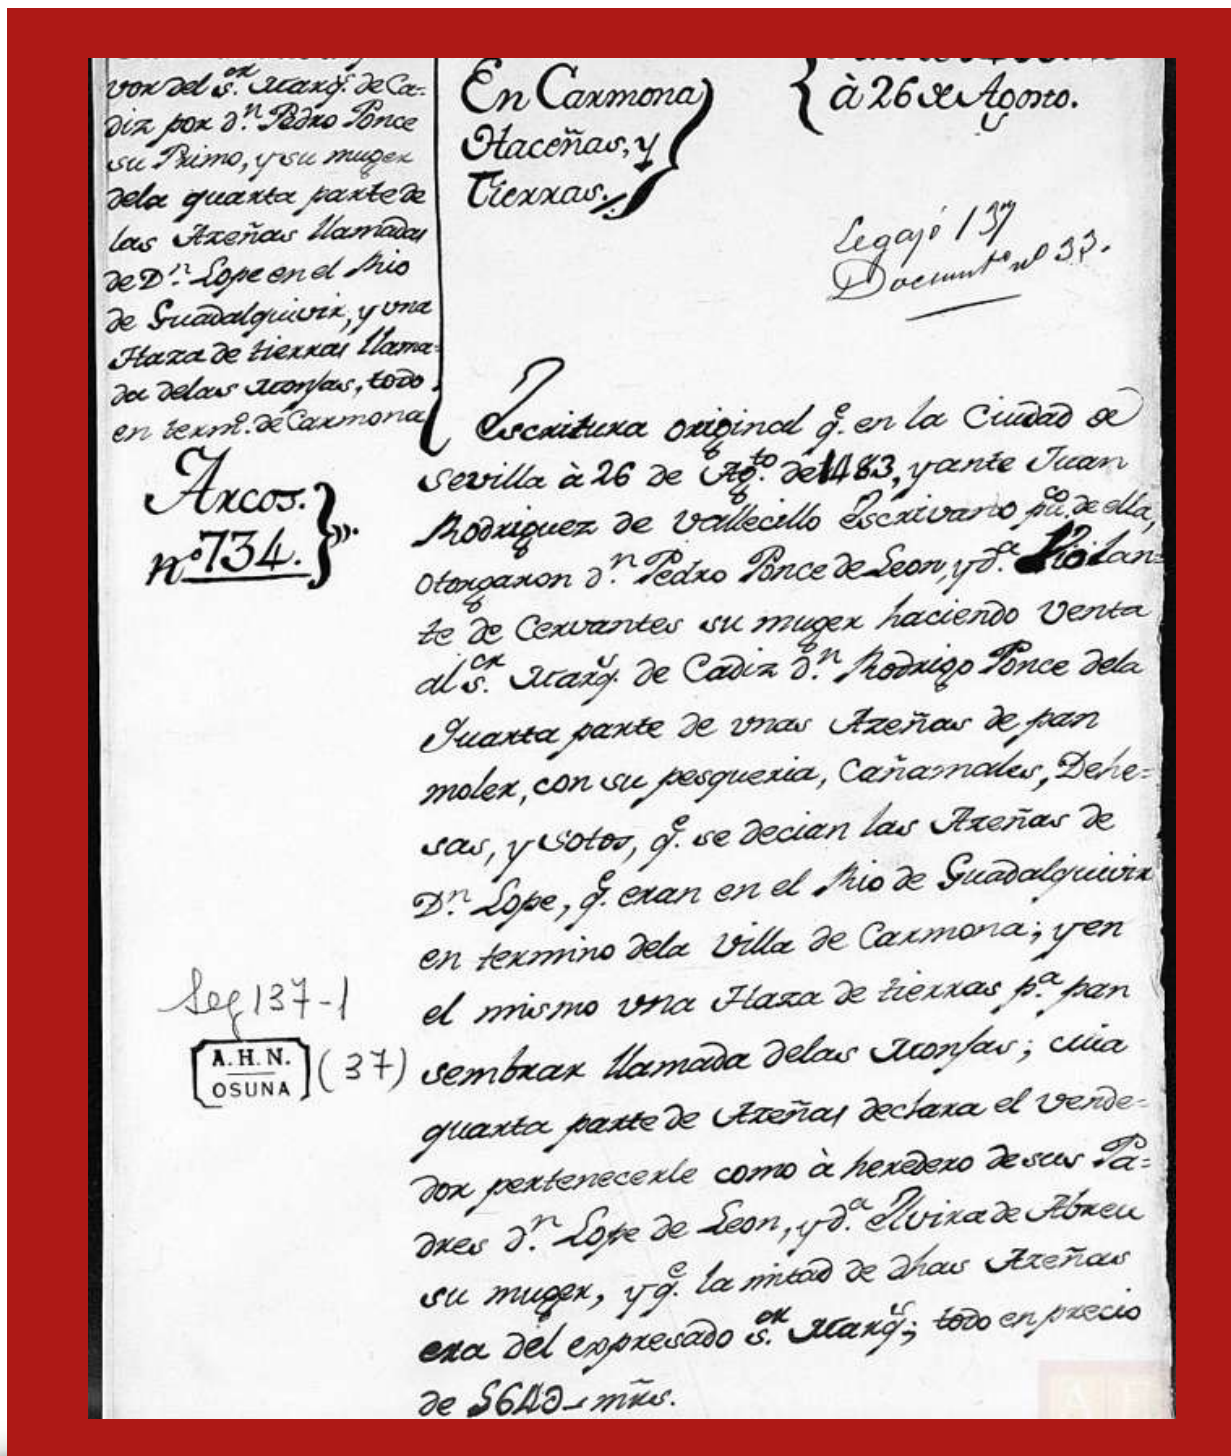 vor del s.or Marq.s de Ca-
diz por d.n Pedro Ponce
su Primo, y su muger
dela quarta parte de
las Azeñas llamadas
de D.n Lope en el Rio
de Guadalquivir, y una
Haza de tierras llama-
da delas Monjas, todo
en term.o de Carmona
Arcos.
nº 734.
En Carmona
Haceñas, y
Tierras.
à 26 de Agosto.
Legajo 137
Documento nº 33.
Escritura original q.e en la Ciudad de
Sevilla à 26 de Ag.to de 1483, y ante Juan
Rodriguez de Vallecillo Escrivano pu.co de ella,
otorgaron d.n Pedro Ponce de Leon, y d.a Violan=
te de Cervantes su muger haciendo Venta
al s.or Marq.s de Cadiz d.n Rodrigo Ponce dela
Quarta parte de vnas Azeñas de pan
moler, con su pesqueria, Cañamales, Dehe=
sas, y Sotos, q.e se decian las Azeñas de
D.n Lope, q.e eran en el Rio de Guadalquivir
en termino dela Villa de Carmona; y en
el mismo vna Haza de tierras p.a pan
sembrar llamada delas Monjas; cuia
quarta parte de Azeñas declara el vende=
dor pertenecerle como à heredero de sus Pa=
dres d.n Lope de Leon, y d.a Elvira de Abreu
su muger, y q.e la mitad de dhas Azeñas
era del expresado s.or Marq.s; todo en precio
de mrs.
Leg 137-1
A.H.N.
OSUNA
(37)